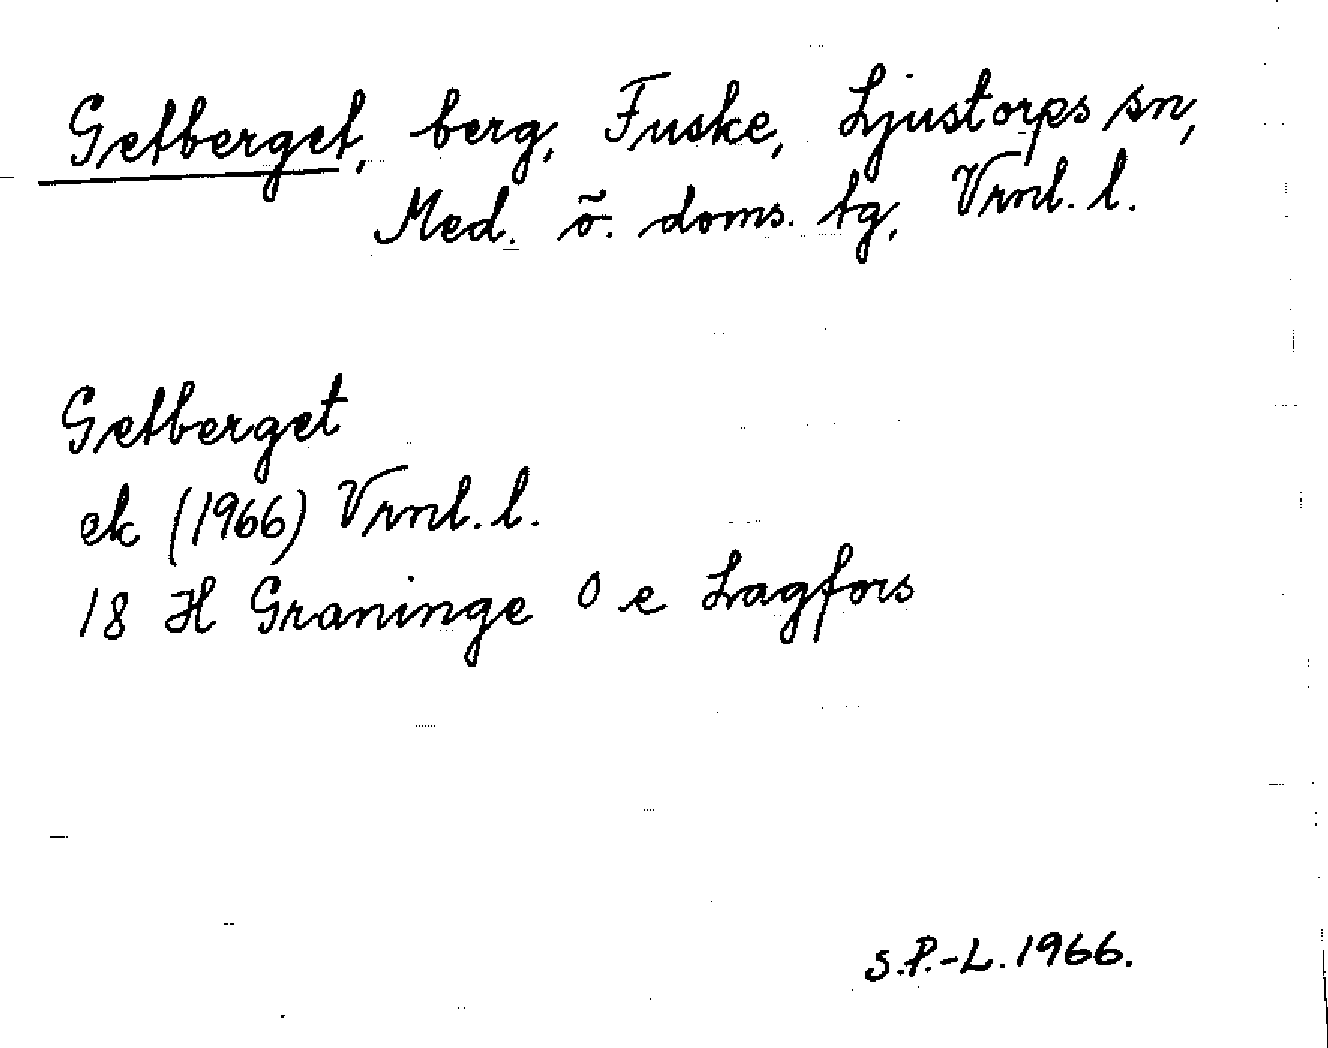 Getberget, berg, Fuske, Ljustorps sn,
Med. ö. doms. tg, Vrnl. l.
Getberget
ek (1966) Vrnl. l.
18 H Graninge 0 e Lagfors
S.P.-L. 1966.